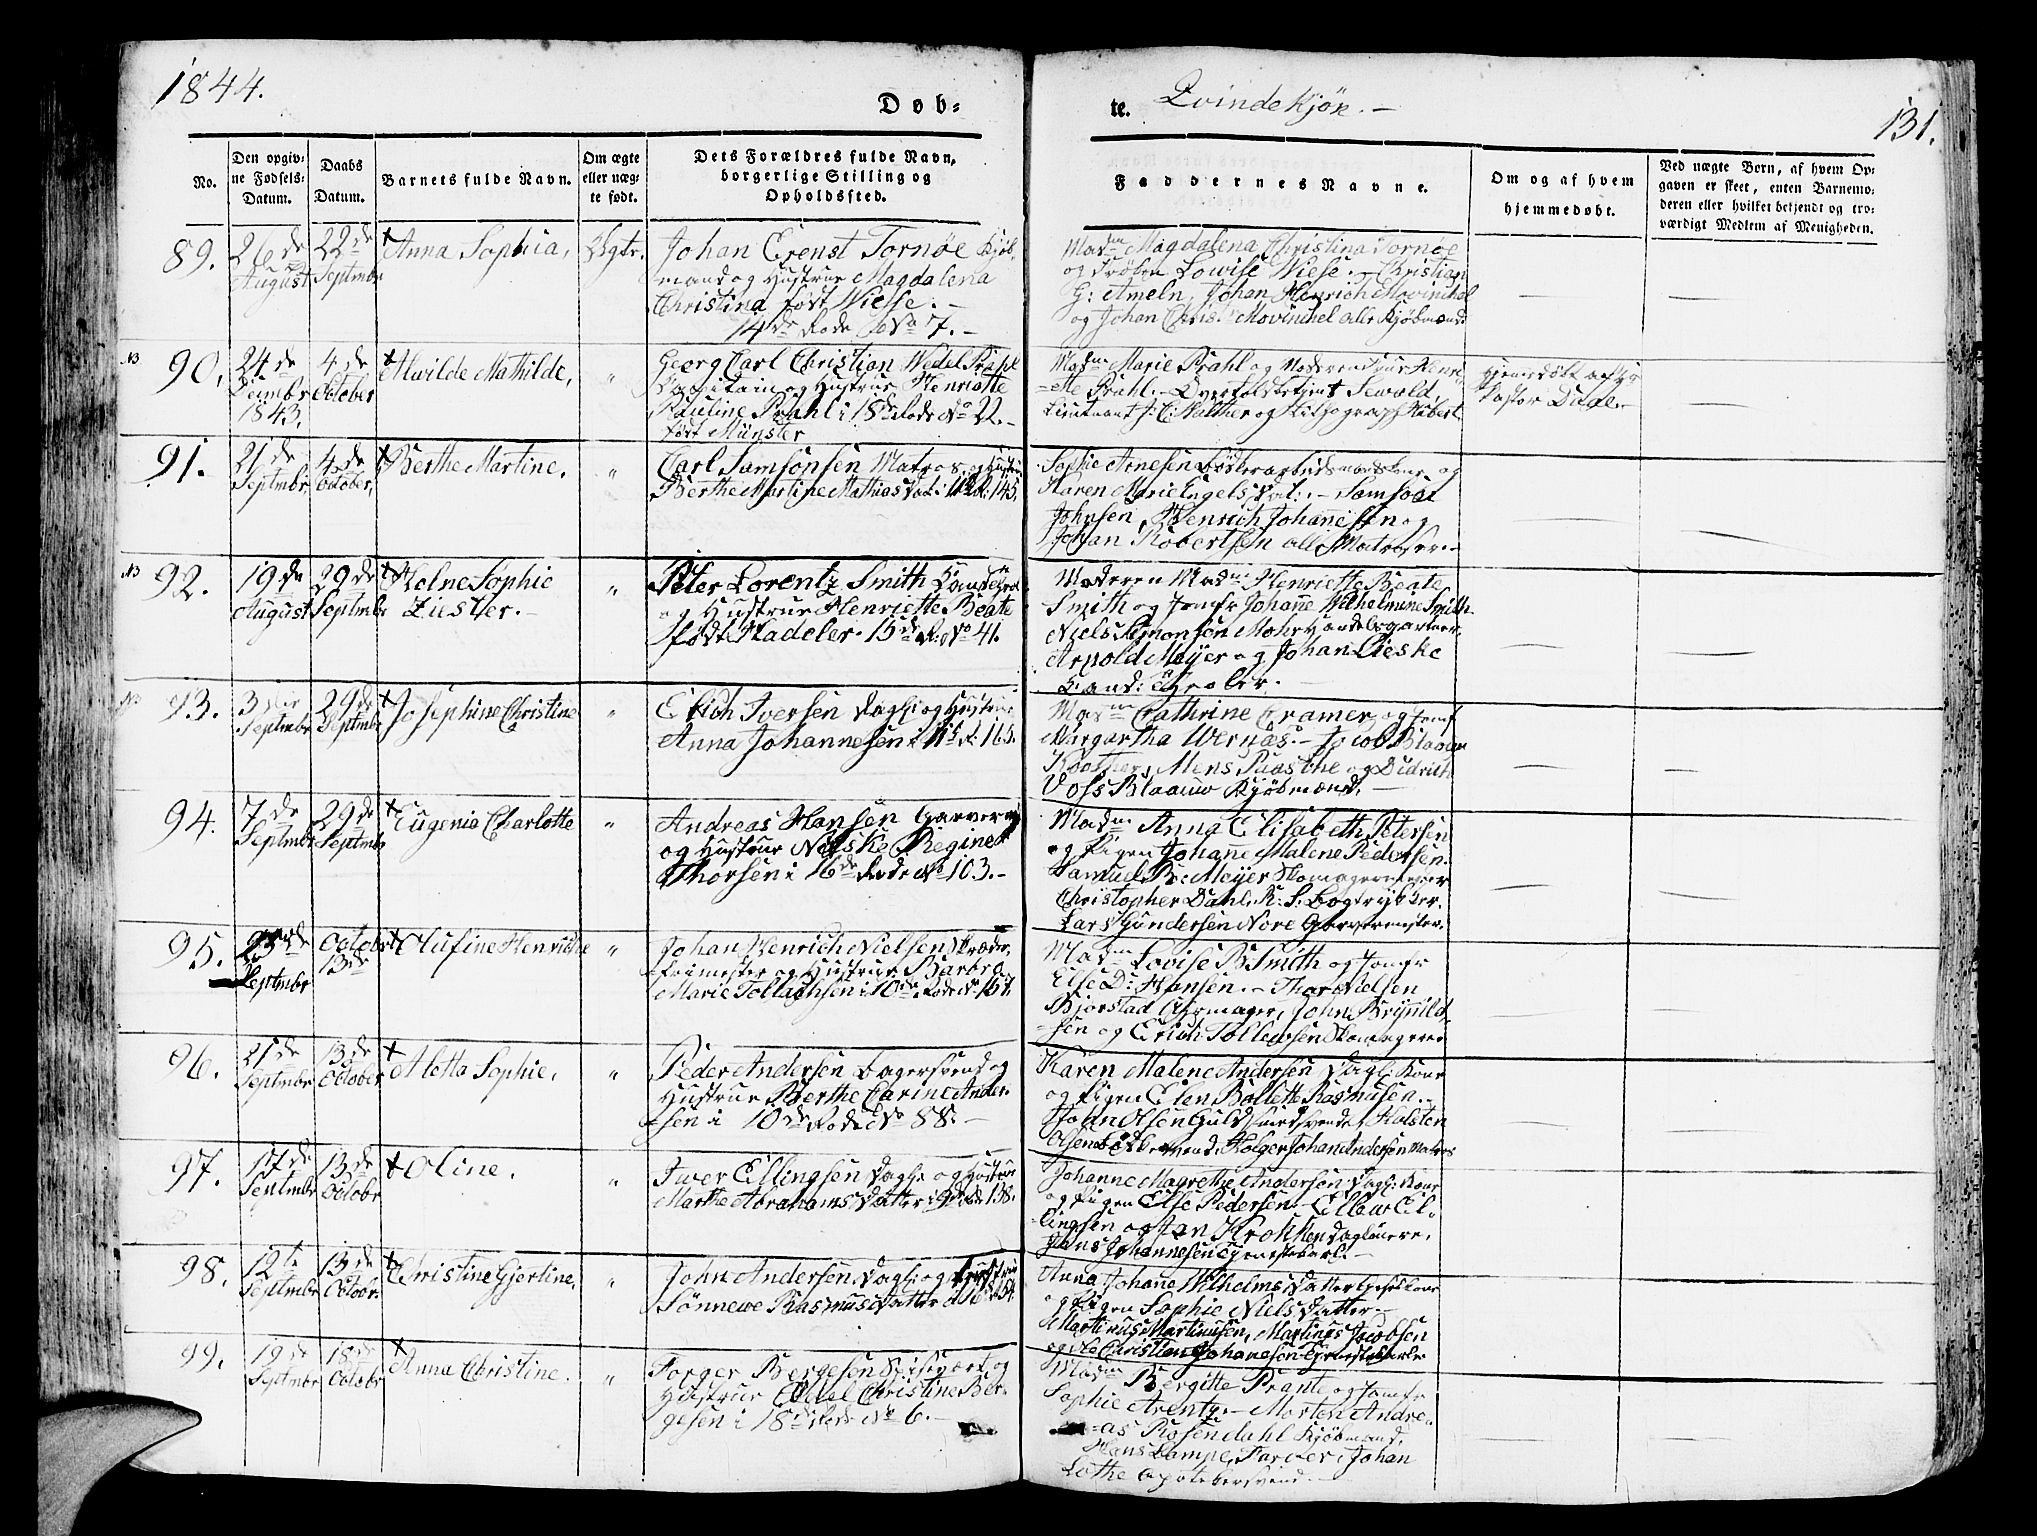 1844.
Døb-
te. Qvindekjøn. -
131.
No.
Den opgiv-
ne Fødsels-
Datum.
Daabs
Datum.
Barnets fulde Navn.
Om ægte
eller uæg-
te født.
Dets Forældres fulde Navn,
borgerlige Stilling og
Opholdssted.
Faddernes Navne.
Om og af hvem
hjemmedøbt.
Ved uægte Born, af hvem Op-
gaven er skeet, enten Barnemo-
deren eller hvilket betjendt og tro-
værdigt Medlem af Menigheden.
89. 26de
August
22de
Septmbr
Anna Sophia,
Ægte.
Johan Ernst Tornøe Kjøb-
mand og Hustrue Magdalena
Christina født Wiese. -
14de Rode No 7. -
Madm Magdalena Christina Tornøe
og Frøken Lowise Wiese. - Christian
G: Ameln, Johan Henrich Mowinchel
og Johan Ernst Mowinchel alle Kjøbmænd.
NB 90. 24de
Decmbr
1843.
4de
October
Alwilde Mathilde,
"
Georg Carl Christian Wedel Prahl
Capitain og Hustrue Henriette
Pauline Prahl i 18de Rode No 22. -
født Münster
Madm Marie Prahl og Moderen Frue Henri-
-tte Prahl. - Overtoldbetjent Sewald,
Lieutnant J: C: Walther og Lithograph Hubert
Hjemmedøbt af Hr
Pastor Dahl. -
91. 21de
Septmbr
4de
October,
Berthe Martine,
"
Carl Samsonsen Matros og Hustrue
Berthe Martine Mathias Dat: i 11te R: 145.
Sophie Arnesen Løsarbeidsmands Kone og
Karen Marie Engels Dat: - Samson
Johnsen, Henrich Johannesen og
Johan Robertsen alle Matroser. -
NB 92. 19de
August
29de
Septmbr
Helne Sophie
Zustler. -
"
Peter Lorentz Smith
og Hustrue Henriette Beate
født Stadeler. 15de R. No 41.
Moderen Madm Henriette Beate
Smith og Jomfr Johane Wilhelmine Smith
Niels Simonsen Mohr Handelsgartner
Arnold Meyer og Johan Pieske
Cand:
NB 93. 3die
Septmbr
29de
Septmbr
Josephine Christine
"
Erich Iversen Dagl: og Hustrue
Anna Johannesen i 11te R: 165.
Madm Cathrine Cramer og Jomf
Margartha Wernæs. - Jacob Blaauw
Mens Puasche og Didrich
Voss Blaauw Kjøbmænd. -
94. 7de
Septmbr
29de
Septmbr
Eugenia Charlotte
"
Andreas Hansen Garverm
og Hustrue Nilske Regine
Thorsen i 16de Rode No 103. -
Madm Anna Elisabeth Petersen
og Pigen Johane Malene Pedersen.
Samuel B: Meyer Skomagermester
Christopher Dahl, R: S. Bogtrykker.
Lars Gundersen Nore Garvermester.
95. 23de
Septmbr
October
13de
Olufine Henricke
"
Johan Henrich Nielsen Skræder-
-laumester og Hustrue Barbra
Marie Tollachsen i 10de Rode No 167.
Madm Lovise B Smith og Jomfr
Else D: Hansen. - Thor Nielsen
Bjorstad Uhrmager, John Brynild-
-sen og Erich Tollewsen Skomagere
96. 21de
Septmbr
13de
October
Aletta Sophie,
"
Peder Andersen Bagersvend og
Hustrue Berthe Carine Ander-
-sen i 10de Rode No 88. -
Karen Malene Andersen Dagl: Kone
og Pigen Elen Bollette Rasmusen. -
John Olsen Guldsmedsvend, Holsten
Olsen Bødkersvend, Holger Johan Andersen Matros
97. 17de
Septmbr
13de
Octobr
Oline.
"
Iver Ellingsen Dagl: og Hustrue
Marthe Abrahams Datter i 9de Rode 138.
Johanne Magrethe Andersen Dagl: Kone
og Pigen Else Pedersen. - Ellew El-
lingsen og Jan Krohken Dagleiere,
Hans Johannesen Tjenestekarl. -
98. 12te
Septmbr
13de
Octobr.
Christine Gjertine,
"
John Andersen Dagl: og Hustrue
Sønnewe Rasmus Datter
Anna Johane Wilhelms Datter Kone
og Pigen Sophie Niels Datter. -
Martinus Martinusen, Martinus Jacobsen
og Ole Christian Johanesen Tjenestekarle
99. 19de
Septmbr
18de
Octobr
Anna Christine.
"
Torger Bergesen Spisevært og
Hustrue Edel Christine Ber-
gesen i 18de Rode No 6. -
Madm Bergitte Prante og Jomfr
Sophie Arentz. - Morten Andre-
-as Rosendahl Kjøbmand,
Hans Lampe, Farver, Johan
Lothe Apothekersvend. -